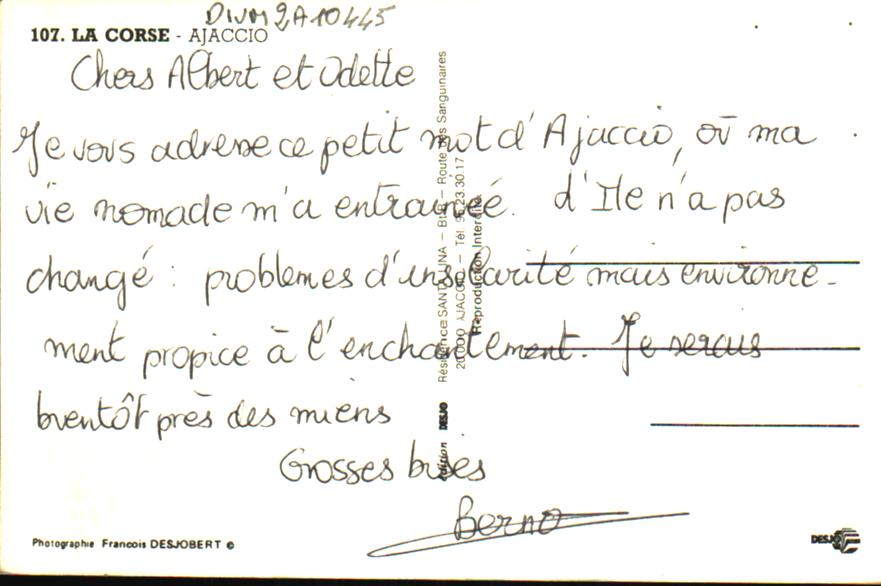 DIVM2A10445
107. LA CORSE - AJACCIO
Chers Albert et Odette
Je vous adresse ce petit mot d'Ajaccio, où ma
vie nomade m'a entrainée. d'Ile n'a pas
changé : problemes d'insularité mais environne-
ment propice à l'enchantement. Je serais
bientôt près des miens
Grosses bises
Berno
édition DESJO Résidence SANTA LINA – Bt B – Route des Sanguinaires
20000 AJACCIO – Tél. 95.23.30.17
Reproduction Interdite
Photographie Francois DESJOBERT ©
DESJO